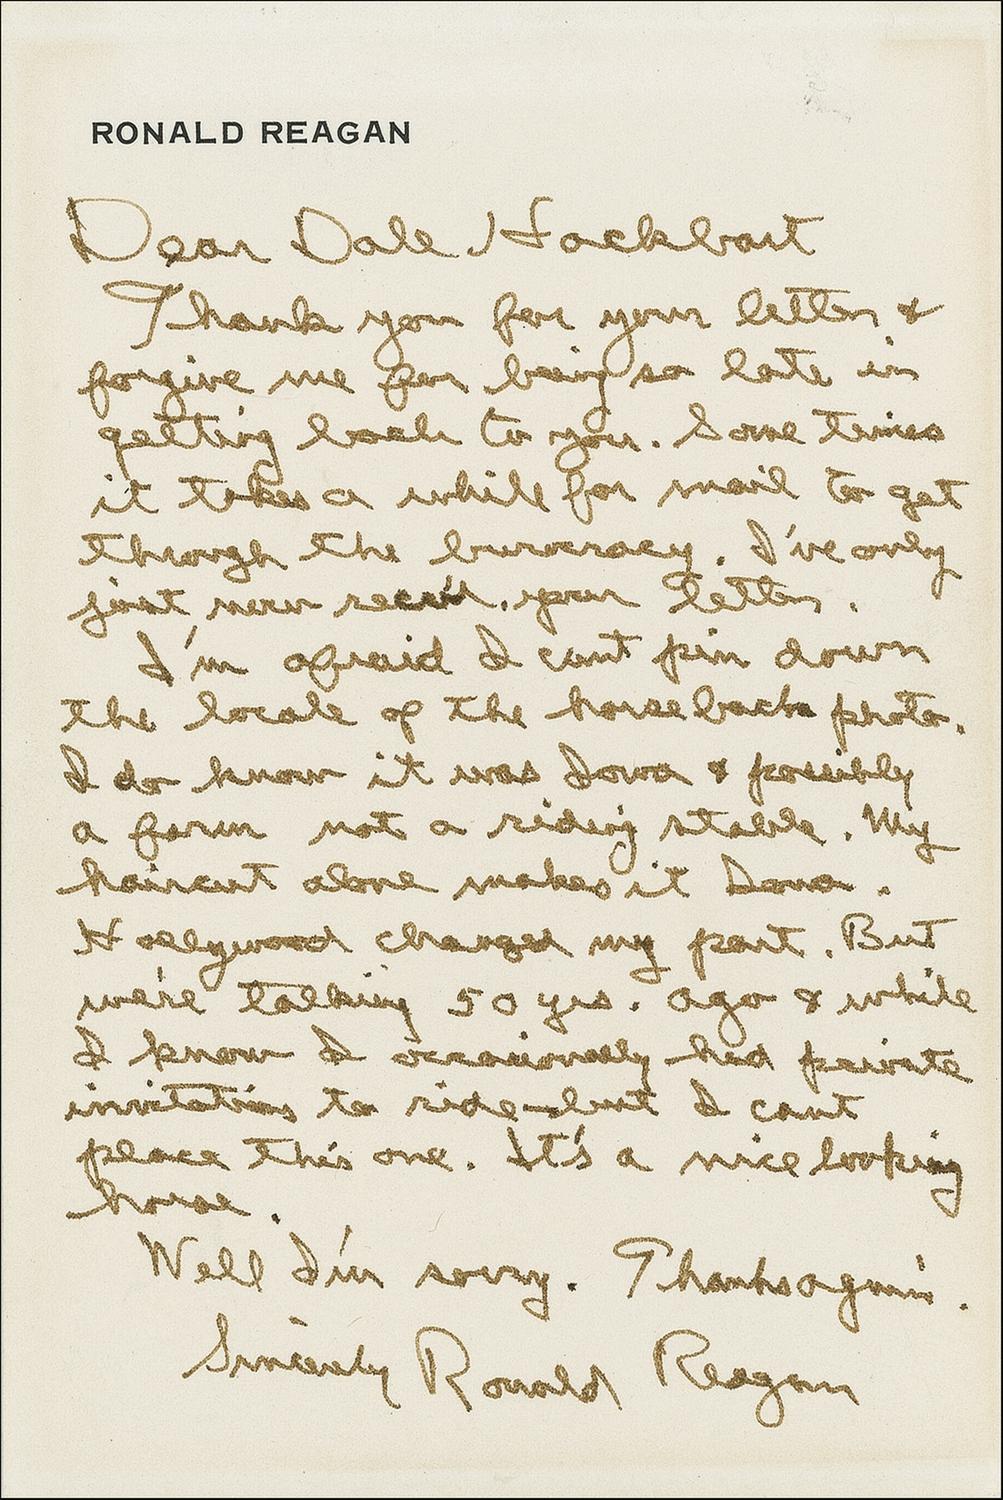 RONALD REAGAN
Dear Dale Hackbart
Thank you for your letter &
forgive me for being so late in
getting back to you. Some times
it takes a while for mail to get
through the burocracy. I've only
just now recv'd. your letter.
I'm afraid I cant pin down
the locale of the horseback photo.
I do know it was Iowa & possibly
a farm not a riding stable. My
haircut alone makes it Iowa.
Hollywood changed my part. But
we're talking 50 yrs. ago & while
I know I occasionally had private
invitations to ride—but I cant
place this one. It's a nice looking
horse.
Well I'm sorry. Thanks again.
Sincerely Ronald Reagan